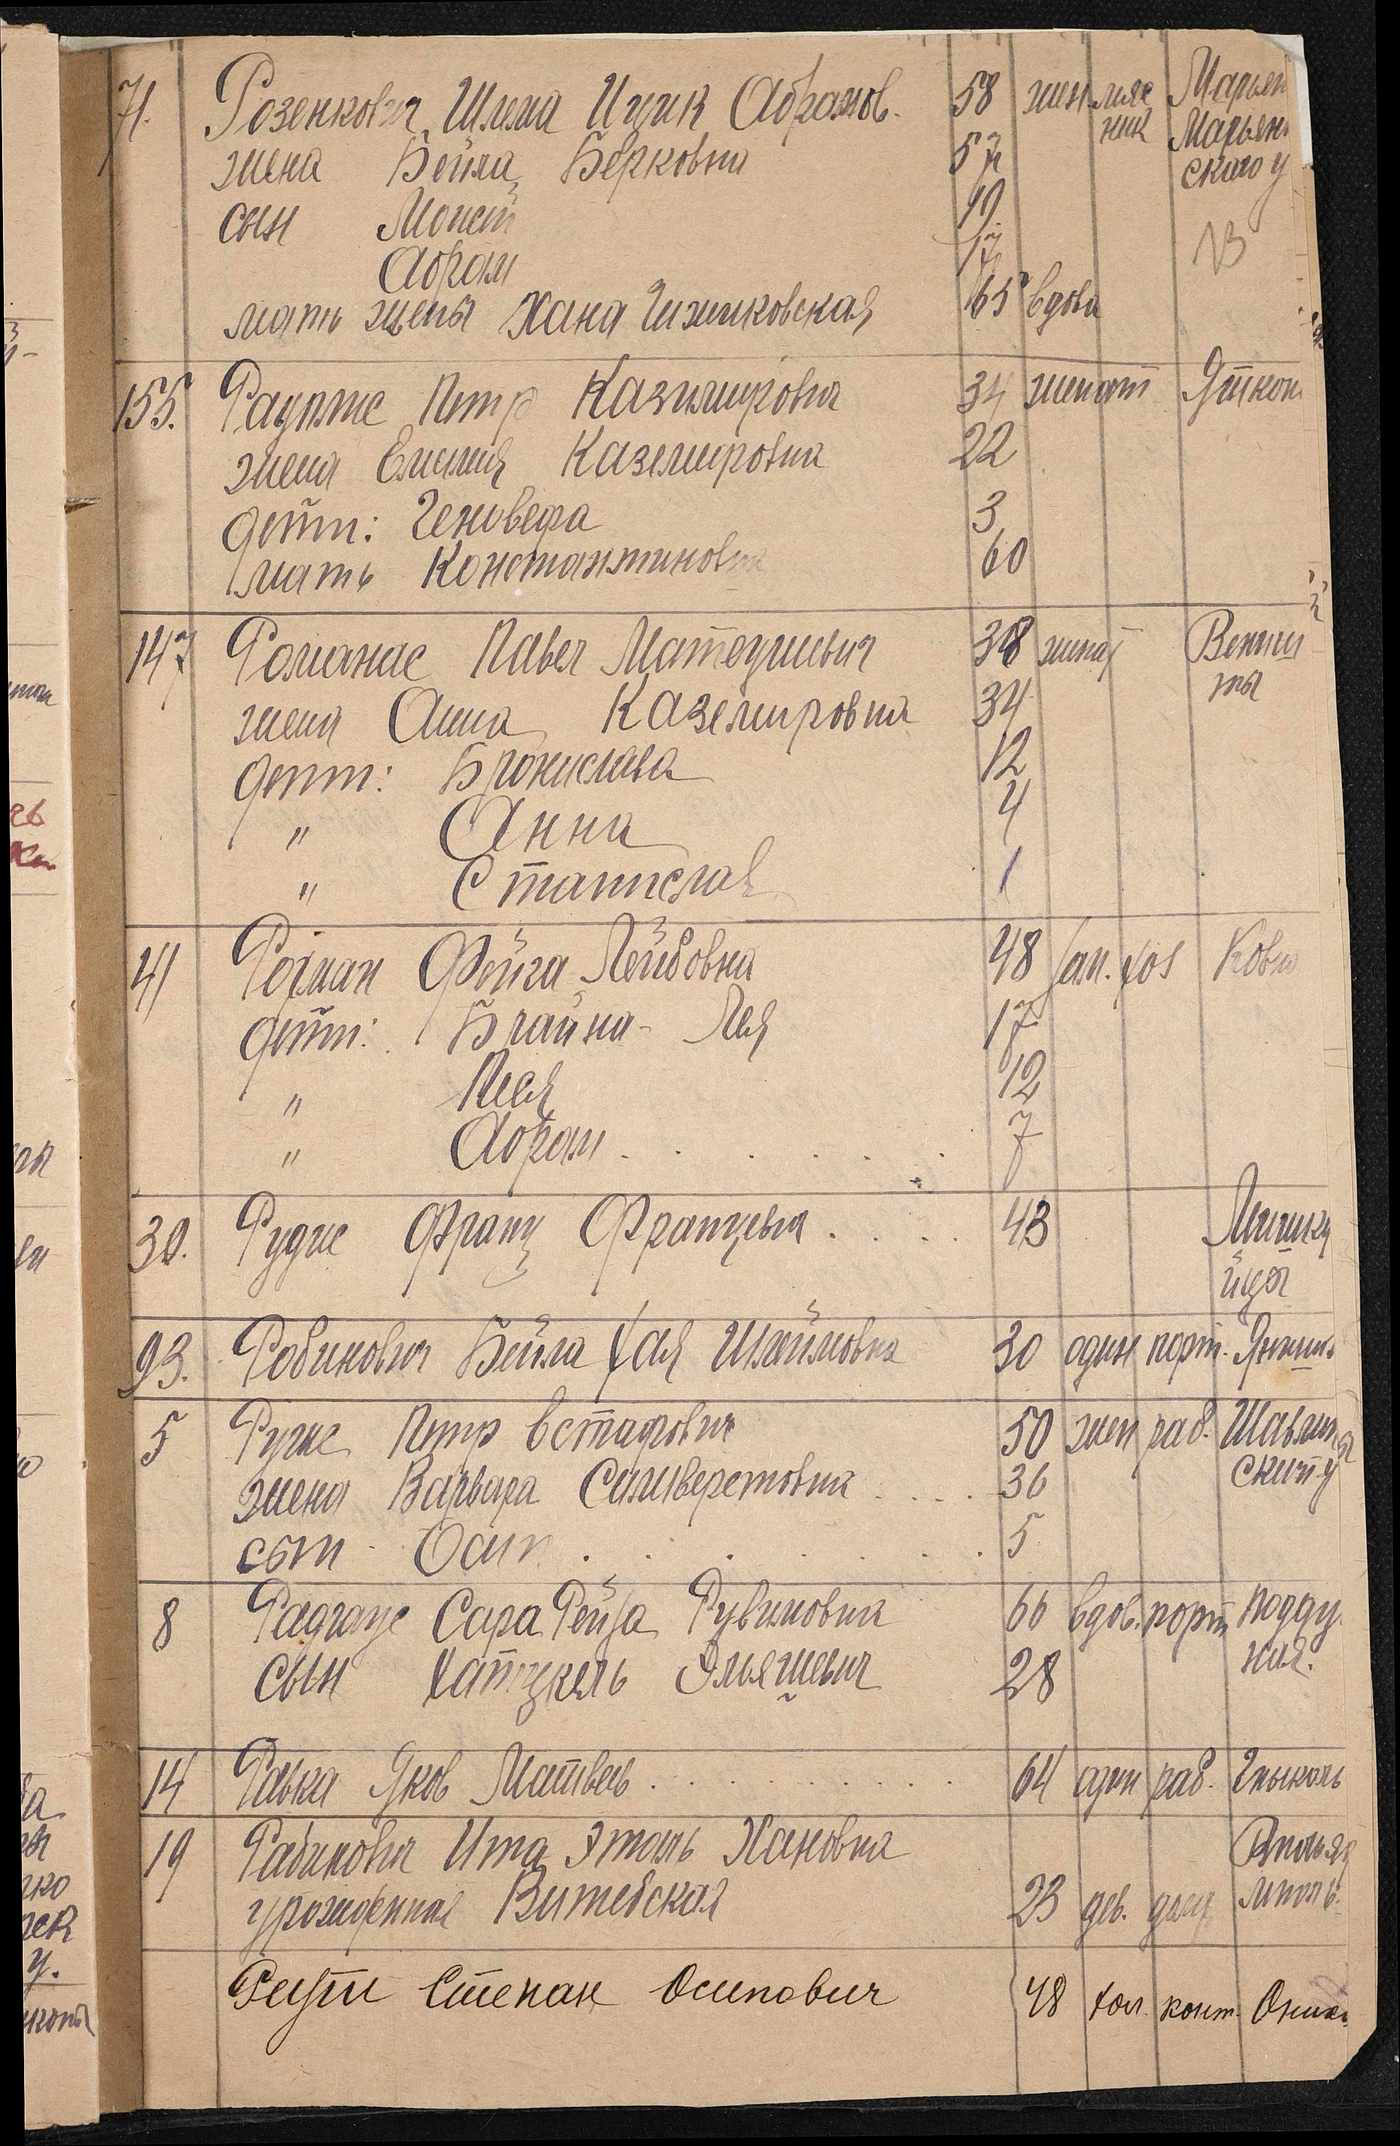 71. Розенкович Шлема Ицик Абрамов. 58 жен. мяс Марьям
ник Марьям
жена Бейла Берковна 57 ского у
сын Моисей 19
Абрам 17 13
мать жены Хана Чижиковская 65 вдова
155. Петр Казимирович 34 женат
жена Емилия Каземировна 22
дети: Геновефа 3
мать Константиновна 60
147 Романас Павел Матеушевич 38 женат
жена Анна Каземировна 34
дети: Бронислава 12
" Анна 4
" Станислав 1
41 Ройман Фейга Лейбовна 48 зам. хоз Ковно
дети: Брайна- Лея 17
" Песя 12
" Абрам 7
30. Рудис Франц Францевич 43
93. Рабинович Бейла Хая Шлеймовна 30 один порт.
5 Петр Встафович 50 жен раб. Шавлин
жена Варвара Силиверстовна 36 ский у
сын Осип 5
8 Сара Рейза Рувимовна 66 вдов. порт
сын Хацкель Эльяшевич 28
14 Равка Яков Матвеев 64 один раб.
19 Рабинович Ита Эталь Хановна
урожденная Витебская 23 дев.
Степан Осипович 48 хол. конт.